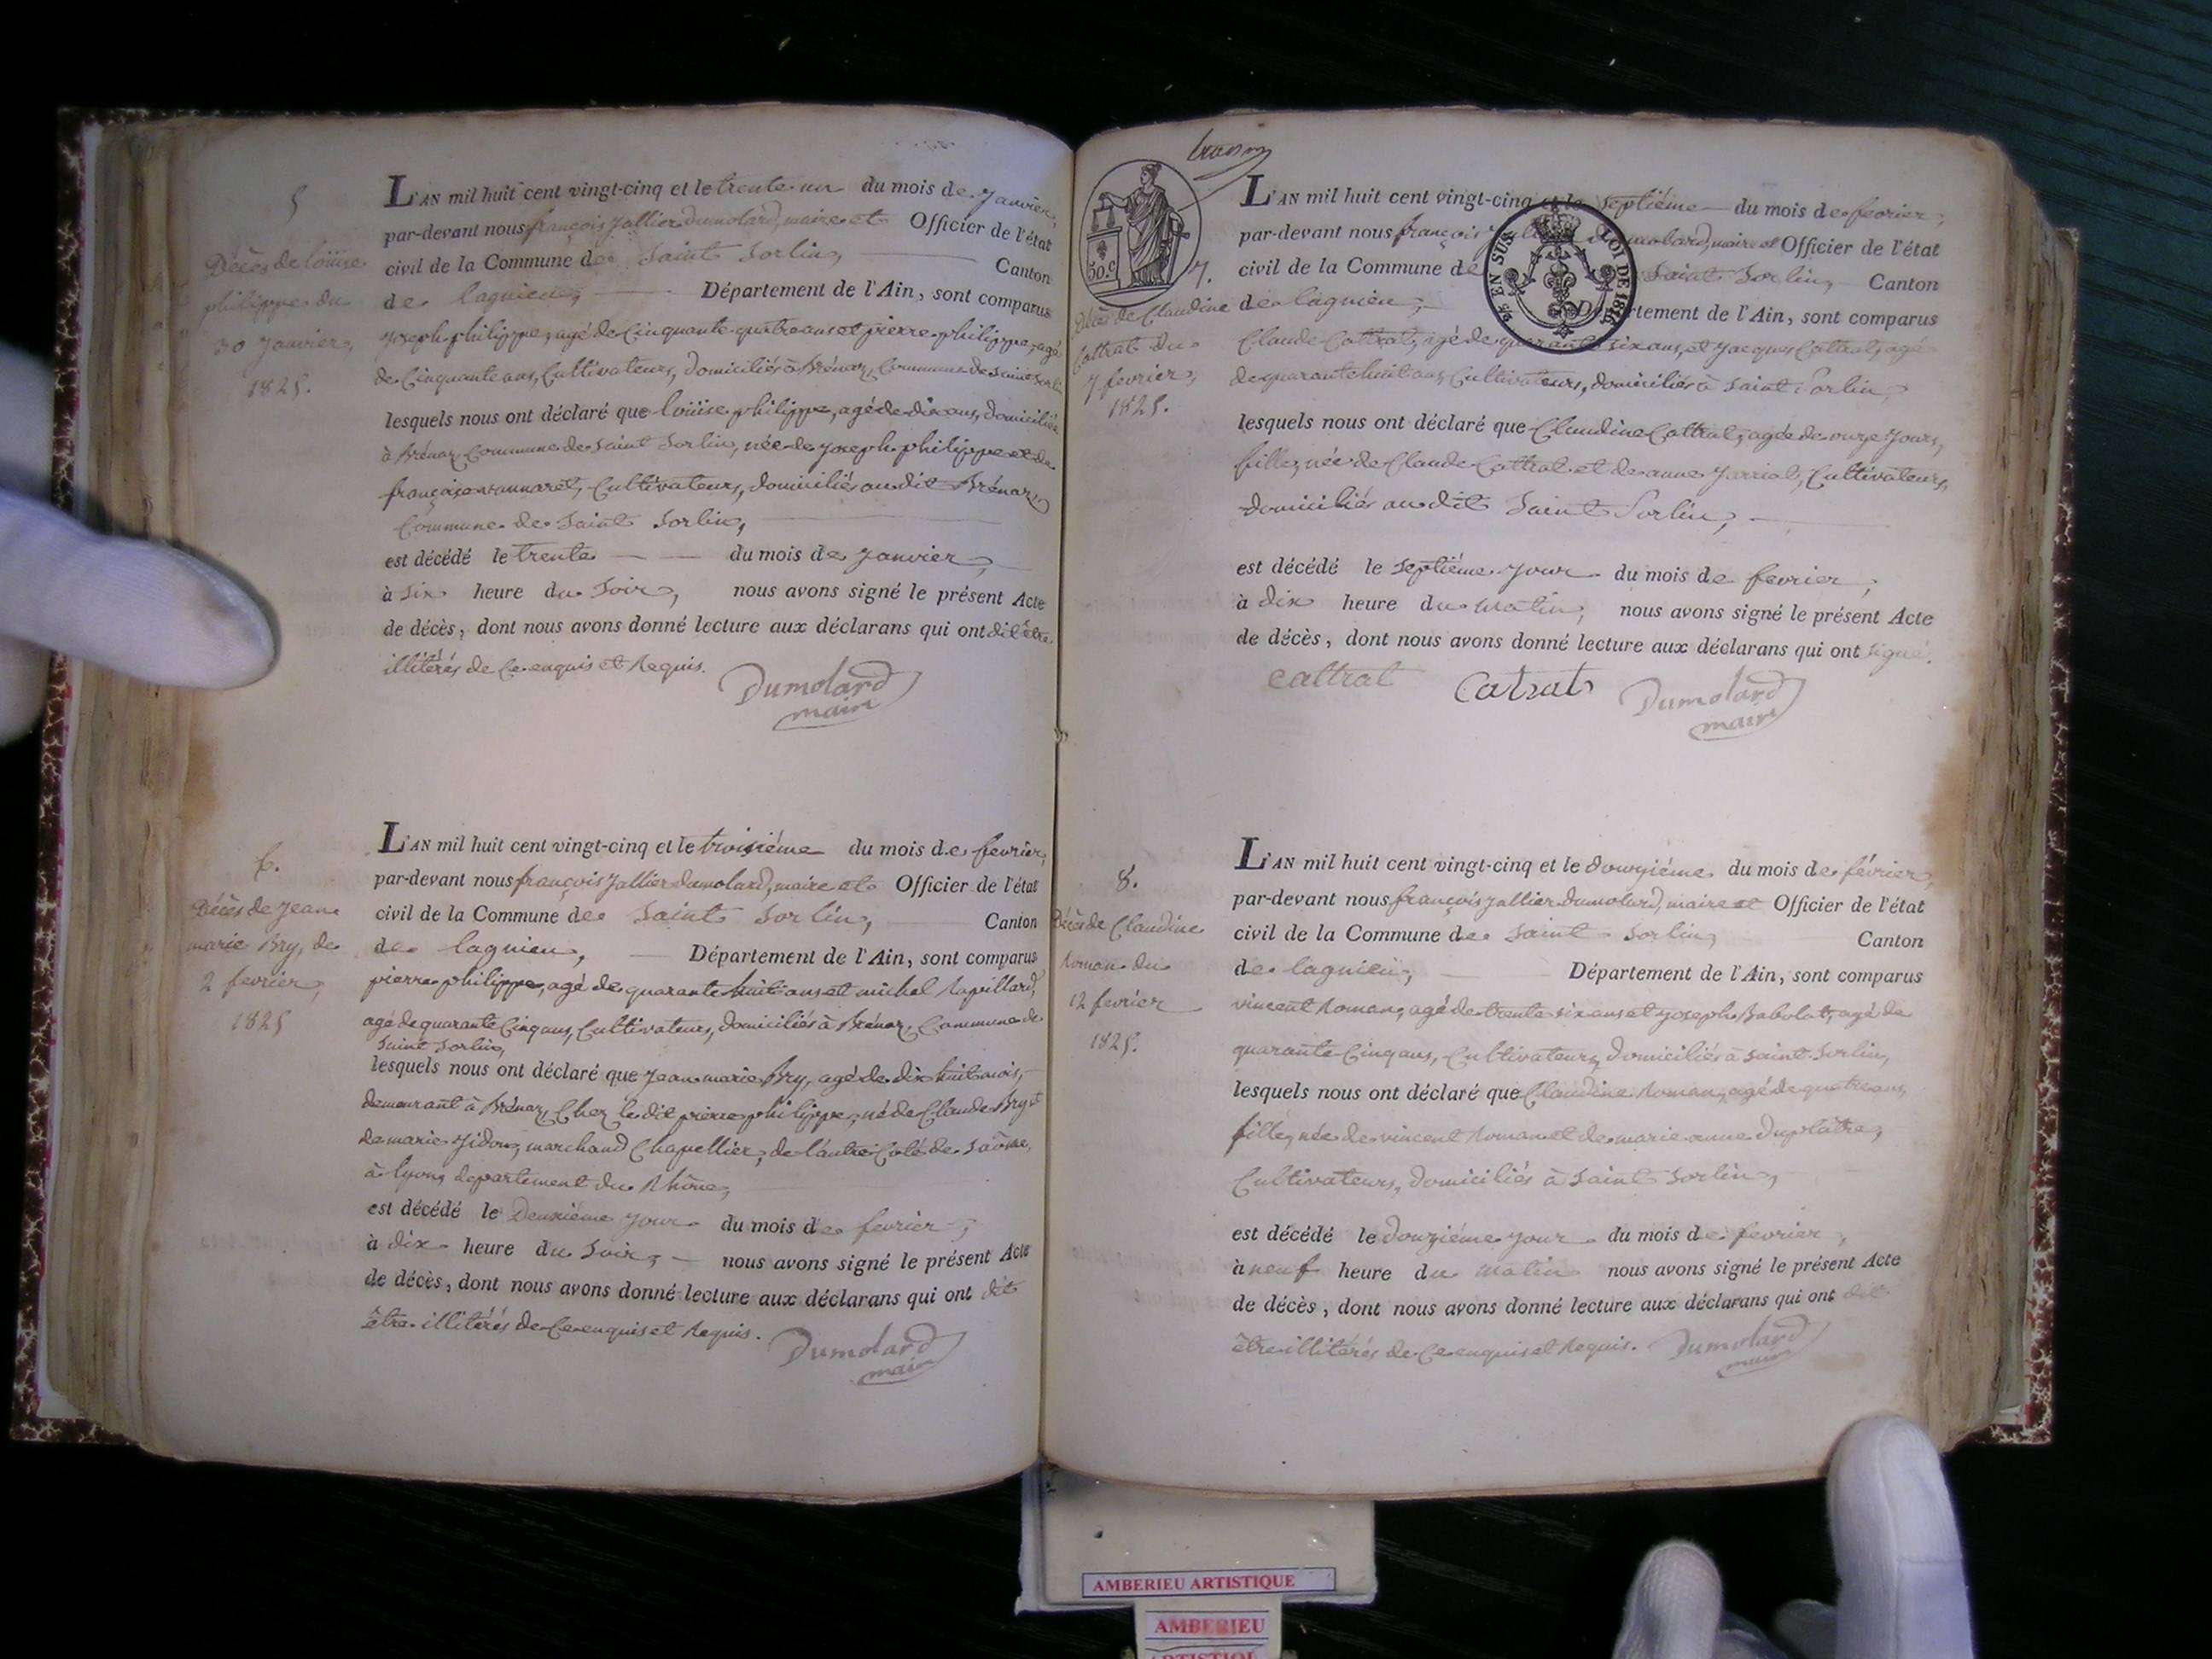 5
Décès de loüise
philippe du
30 Janvier,
1825.
L'AN mil huit cent vingt-cinq et le trente un du mois de Janvier,
par-devant nous françois Jallier Dumolard, maire et Officier de l'état
civil de la Commune de Saint Sorlin, Canton
de lagnieu, Département de l'Ain, sont comparus
Joseph philippe, agé de Cinquante quatre ans et pierre philippe, agé
de Cinquante ans, Cultivateurs, domiciliés à Brénaz, Commune de Saint Sorlin
lesquels nous ont déclaré que loüise philippe, agée de dix ans, domiciliée
à Brénaz Commune de Saint Sorlin, née de Joseph philippe et de
françoise vannaret, Cultivateurs, domiciliés au dit Brénaz,
Commune de Saint Sorlin,
est décédé le trente du mois de Janvier,
à Six heure du Soir, nous avons signé le présent Acte
de décès, dont nous avons donné lecture aux déclarans qui ont dit être
illitérés de Ce enquis et Requis.
Dumolard
maire
6.
Décès de Jean
marie Bry, de
2 fevrier,
1825
L'AN mil huit cent vingt-cinq et le troisiéme du mois de fevrier,
par-devant nous françois Jallier Dumolard, maire et Officier de l'état
civil de la Commune de Saint Sorlin, Canton
de lagnieu, Département de l'Ain, sont comparus
pierre philippe, agé de quarante huit ans et michel Rapillard,
agé de quarante Cinq ans, Cultivateurs, domiciliés à Brénaz, Commune de
Saint Sorlin,
lesquels nous ont déclaré que Jean marie Bry, agé de dix huit mois,
demeurant à Brénaz, Chez le dit pierre philippe, né de Claude Bry et
de marie Jidon, marchand Chapellier, de l'autre Coté de Saône,
à lyon, departement du Rhône,
est décédé le Deuxiéme jour du mois de fevrier,
à dix heure du Soir, nous avons signé le présent Acte
de décès, dont nous avons donné lecture aux déclarans qui ont dit
être illitérés de Ce enquis et Requis.
Dumolard
maire
50.c
7.
Décès de Claudine
Cattrat du
7 fevrier,
1825.
EN SUS LOI DE 1816
L'AN mil huit cent vingt-cinq et le Septiéme du mois de fevrier,
par-devant nous françois Jallier Dumolard, maire et Officier de l'état
civil de la Commune de Saint Sorlin, Canton
de lagnieu, Département de l'Ain, sont comparus
Claude Cattrat, agé de quarante six ans, et Jacques Catrat, agé
de quarante huit ans, Cultivateurs, domiciliés à Saint Sorlin,
lesquels nous ont déclaré que Claudine Cattrat, agée de onze Jours,
fille, née de Claude Cattrat et de anne Jarriat, Cultivateurs,
domiciliés au dit Saint Sorlin,
est décédé le Septiéme Jour du mois de fevrier,
à dix heure du Matin, nous avons signé le présent Acte
de décès, dont nous avons donné lecture aux déclarans qui ont signé.
Cattrat Catrat Dumolard
maire
8.
Décès de Claudine
Roman du
12 fevrier
1825.
L'AN mil huit cent vingt-cinq et le douziéme du mois de février,
par-devant nous françois Jallier Dumolard, maire et Officier de l'état
civil de la Commune de Saint Sorlin, Canton
de lagnieu, Département de l'Ain, sont comparus
vincent Roman, agé de trente six ans et Joseph Babolat, agé de
quarante Cinq ans, Cultivateurs, domiciliés à Saint Sorlin,
lesquels nous ont déclaré que Claudine Roman, agé de quatre ans,
fille, née de vincent Roman et de marie anne Duplâtre,
Cultivateurs, domiciliés à Saint Sorlin,
est décédé le douziéme jour du mois de fevrier,
à neuf heure du Matin nous avons signé le présent Acte
de décès, dont nous avons donné lecture aux déclarans qui ont dit
être illitérés de Ce enquis et Requis.
Dumolard
maire
AMBERIEU ARTISTIQUE
AMBERIEU
ARTISTIQUE